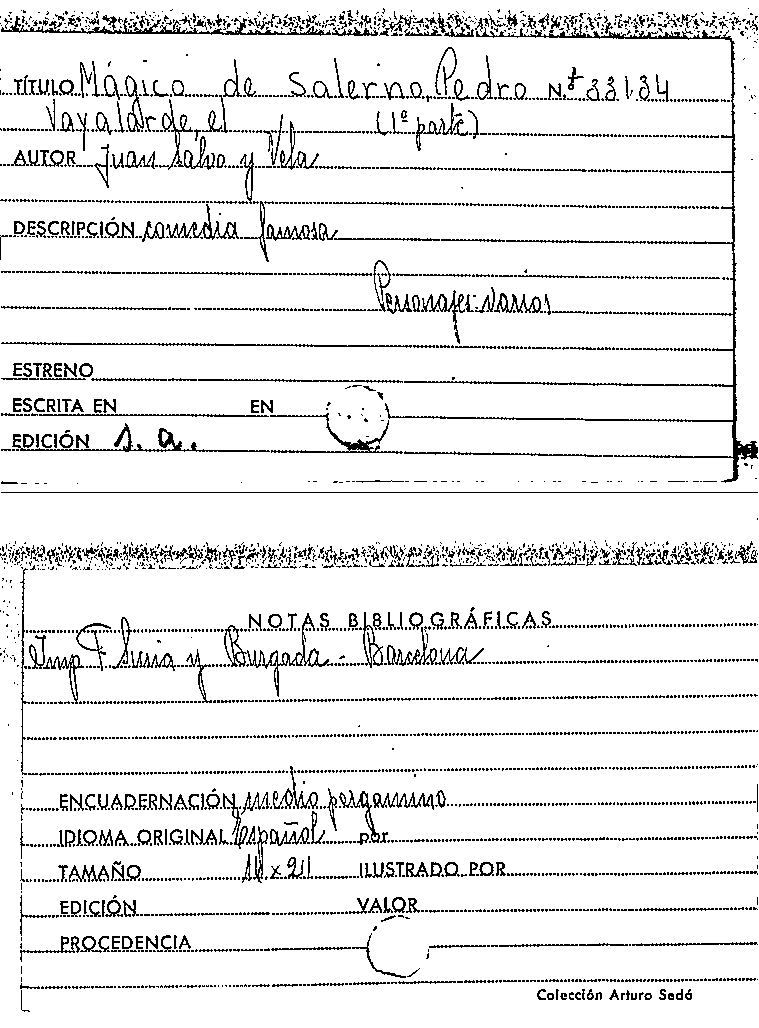 TÍTULO Mágico de Salerno, Pedro N.º 33134
Vayalarde, el (1ª parte)
AUTOR Juan Salvo y Vela
DESCRIPCIÓN comedia famosa
Personajes: varios
ESTRENO
ESCRITA EN EN
EDICIÓN s. a.
NOTAS BIBLIOGRÁFICAS
Imp F. Suria y Burgada - Barcelona
ENCUADERNACIÓN medio pergamino
IDIOMA ORIGINAL Español por
TAMAÑO ILUSTRADO POR
EDICIÓN VALOR
PROCEDENCIA
Colección Arturo Sedó